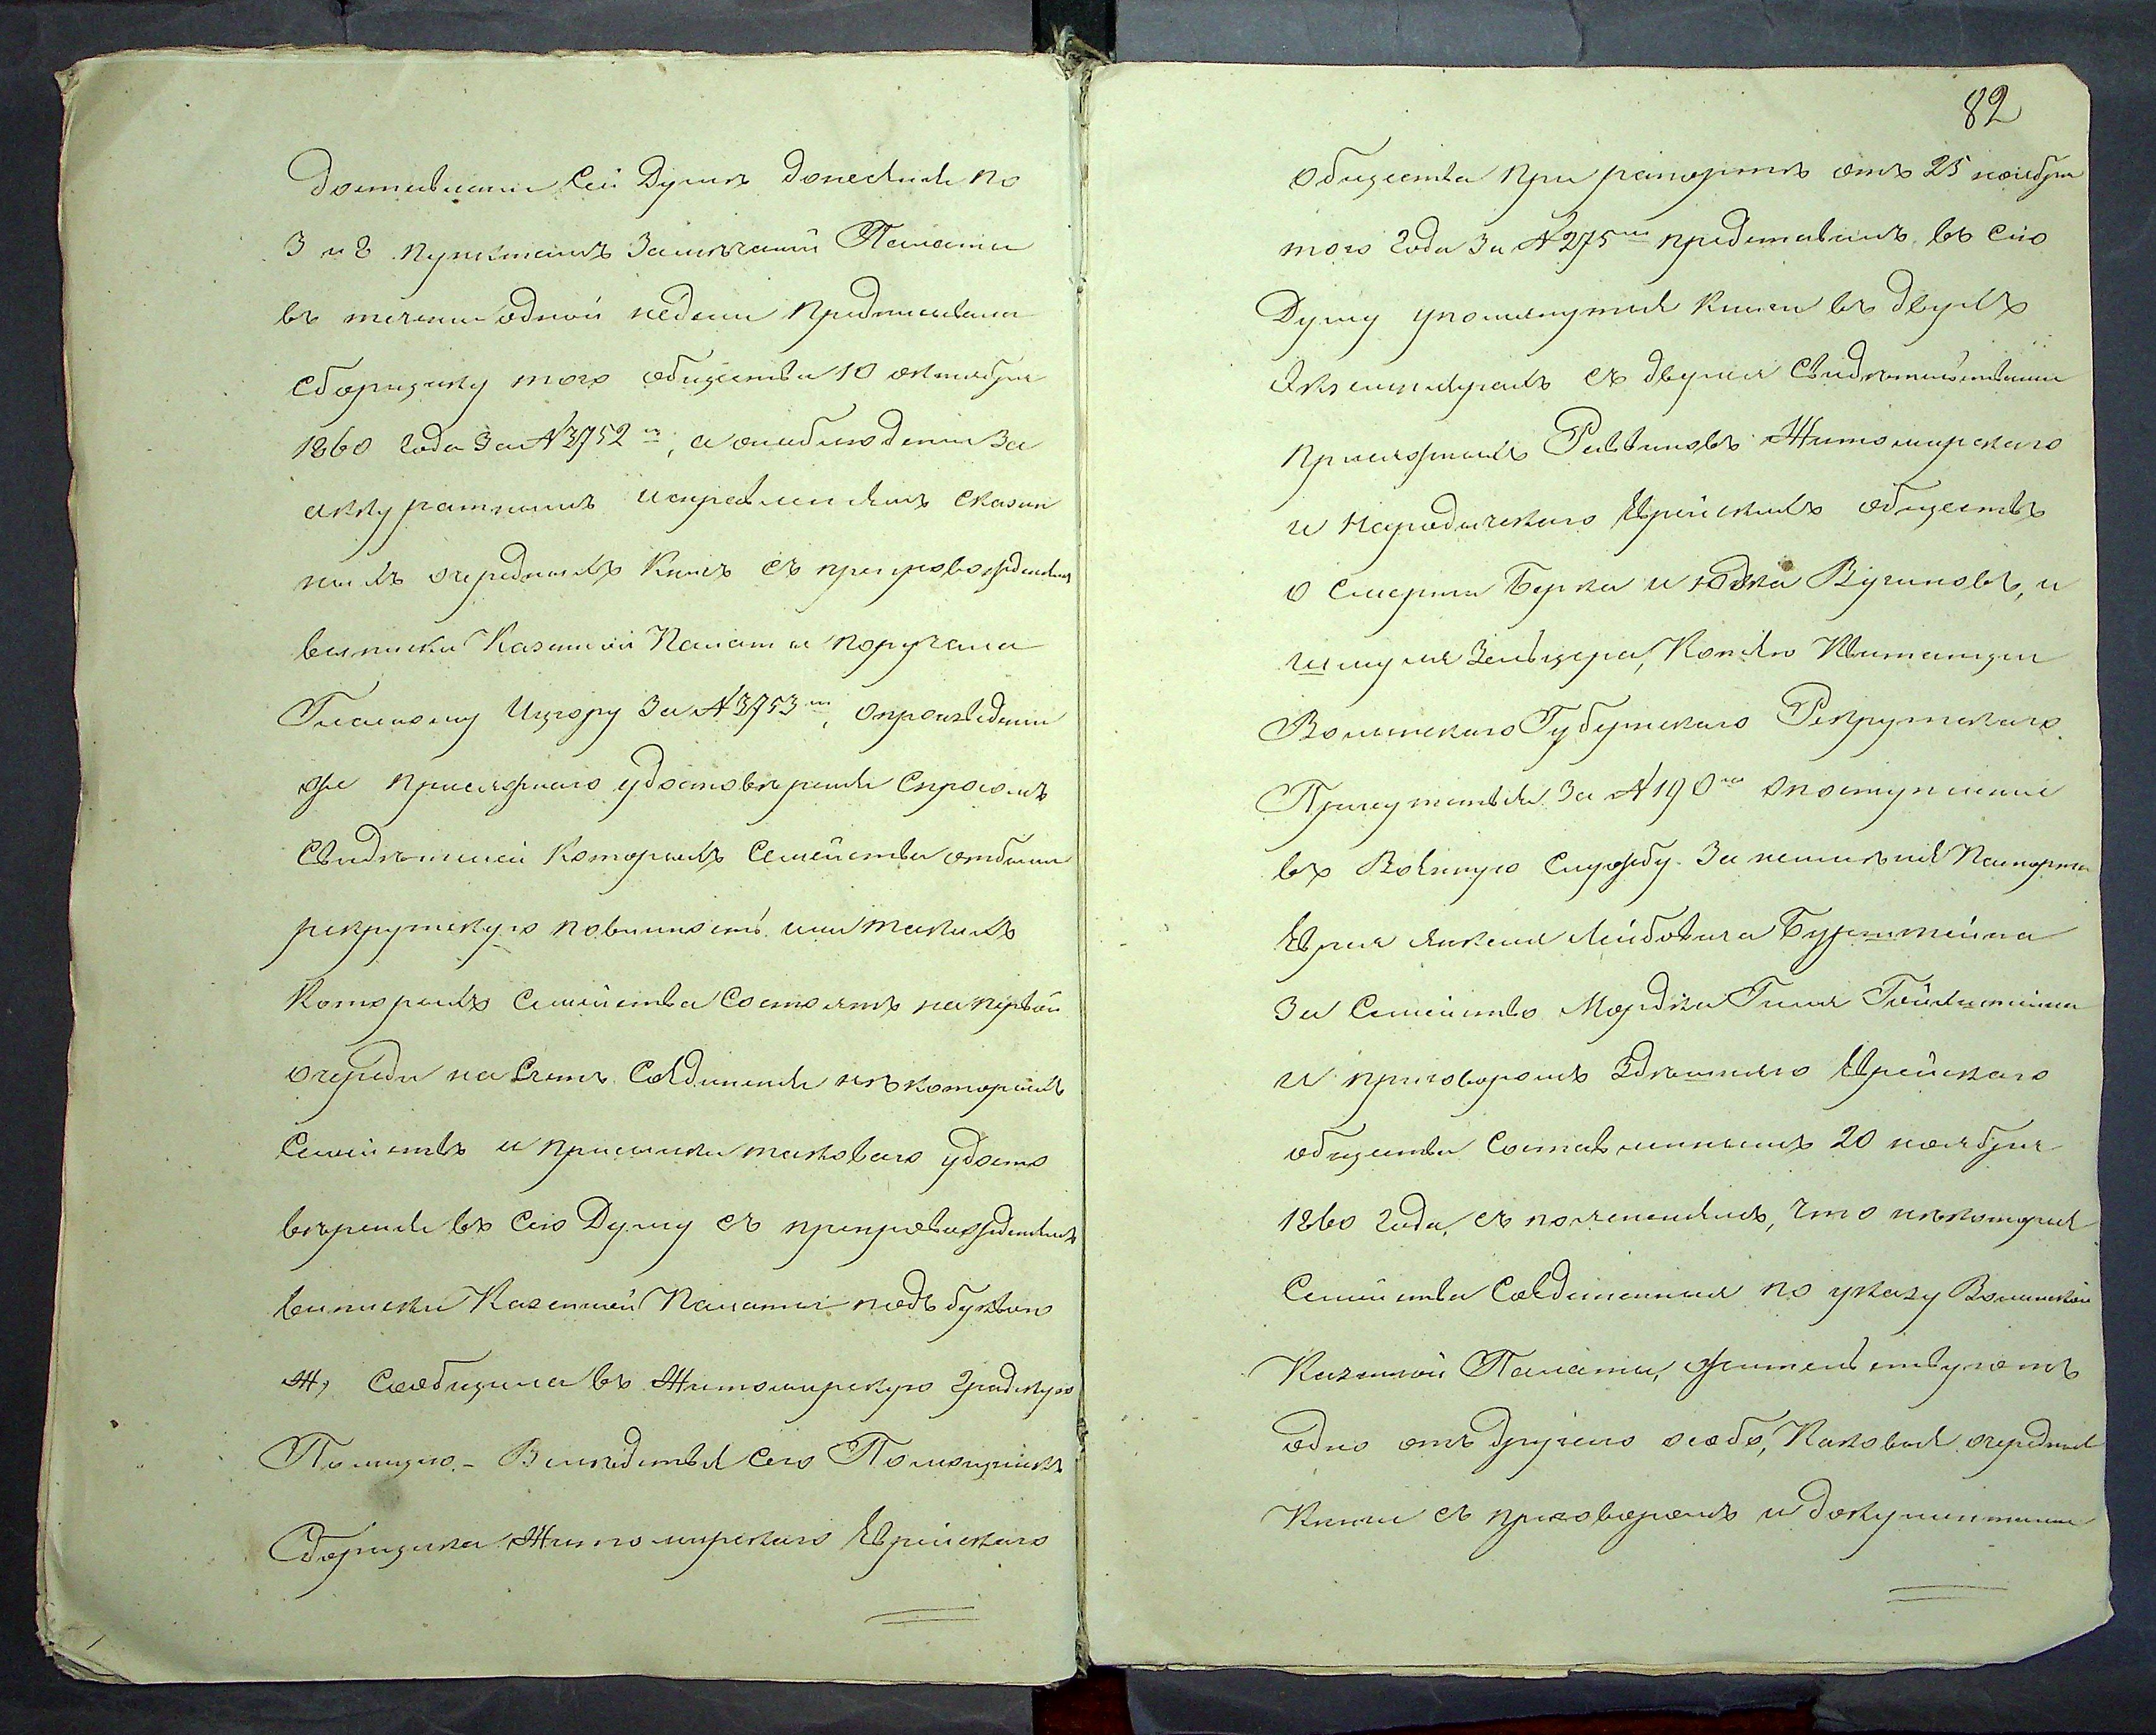 доставленiи сей Думѣ донесенiя по
3 и 8 пунктамъ замѣчанiй Палаты
въ теченiи одной недѣли предписывала
сборщику того общества 10 октября
1860 года за № 3752м, а онаблюденiи за
аккуратнымъ исправленiемъ сказан
ныхъ очередныхъ книгъ съ препровожденiемъ
выписки Казенной Палаты поручала
Гласному за № 3753м, опроизведенiи
же присяжнаго удостовѣренiя спросомъ
свидѣтелей которыхъ семейства отбыли
рекрутскую повинность или такихъ
которыхъ семейства состоятъ на первой
очереди на счетъ соединенiя нѣкоторыхъ
семействъ и присылки таковаго удосто
вѣренiя въ сiю Думу съ препровожденiемъ
выписки Казенной Палаты подъ буквою
Ж, сообщила въ Житомирскую градскую
Полицiю. – Вслѣдствiя сего Помощникъ
Сборщика Житомирскаго Еврейскаго
82
общества при рапортѣ отъ 25 ноября
того года за № 275м представилъ въ сiю
Думу упомянутыя книги въ двухъ
экземплярахъ съ двумя свидѣтельствами
присяжныхъ Раввиновъ Житомирскаго
и Народичскаго Еврейскихъ обществъ
о смерти Берка и Юдка, и
Шмуля Зельцера, копiею квитанцiи
Волынскаго Губернскаго Рекрутскаго
Присутствiя за № 190м опоступленiи
въ Военную службу за неимѣнiя паспорта
Еврея Янкеля Лейбовича Бурштейна
за семейство Мордка Гиля
и приговоромъ здѣшняго Еврейскаго
общества составленнымъ 20 ноября
1860 года, съ поясненiемъ, что нѣкоторыя
семейства соединенныя по указу Волынской
Казенной Палаты, жительствуютъ
одно отъ другаго особо, каковыя очередныя
книги съ приговоромъ и документами